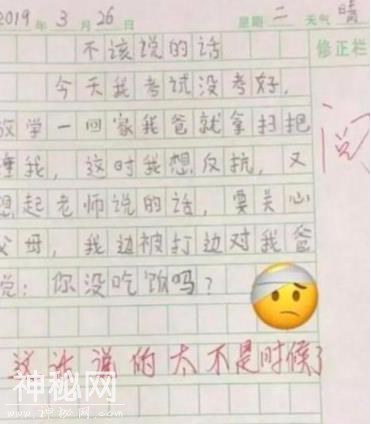 2019年3月26日 星期二 天气晴
修正栏
不该说的话
今天我考试没考好，
放学一回家我爸就拿扫把
捶我，这时我想反抗，又
想起老师说的话，要关心
父母，我边被打边对我爸
说：你没吃饭吗？
阅
这话说的太不是时候了
神秘网